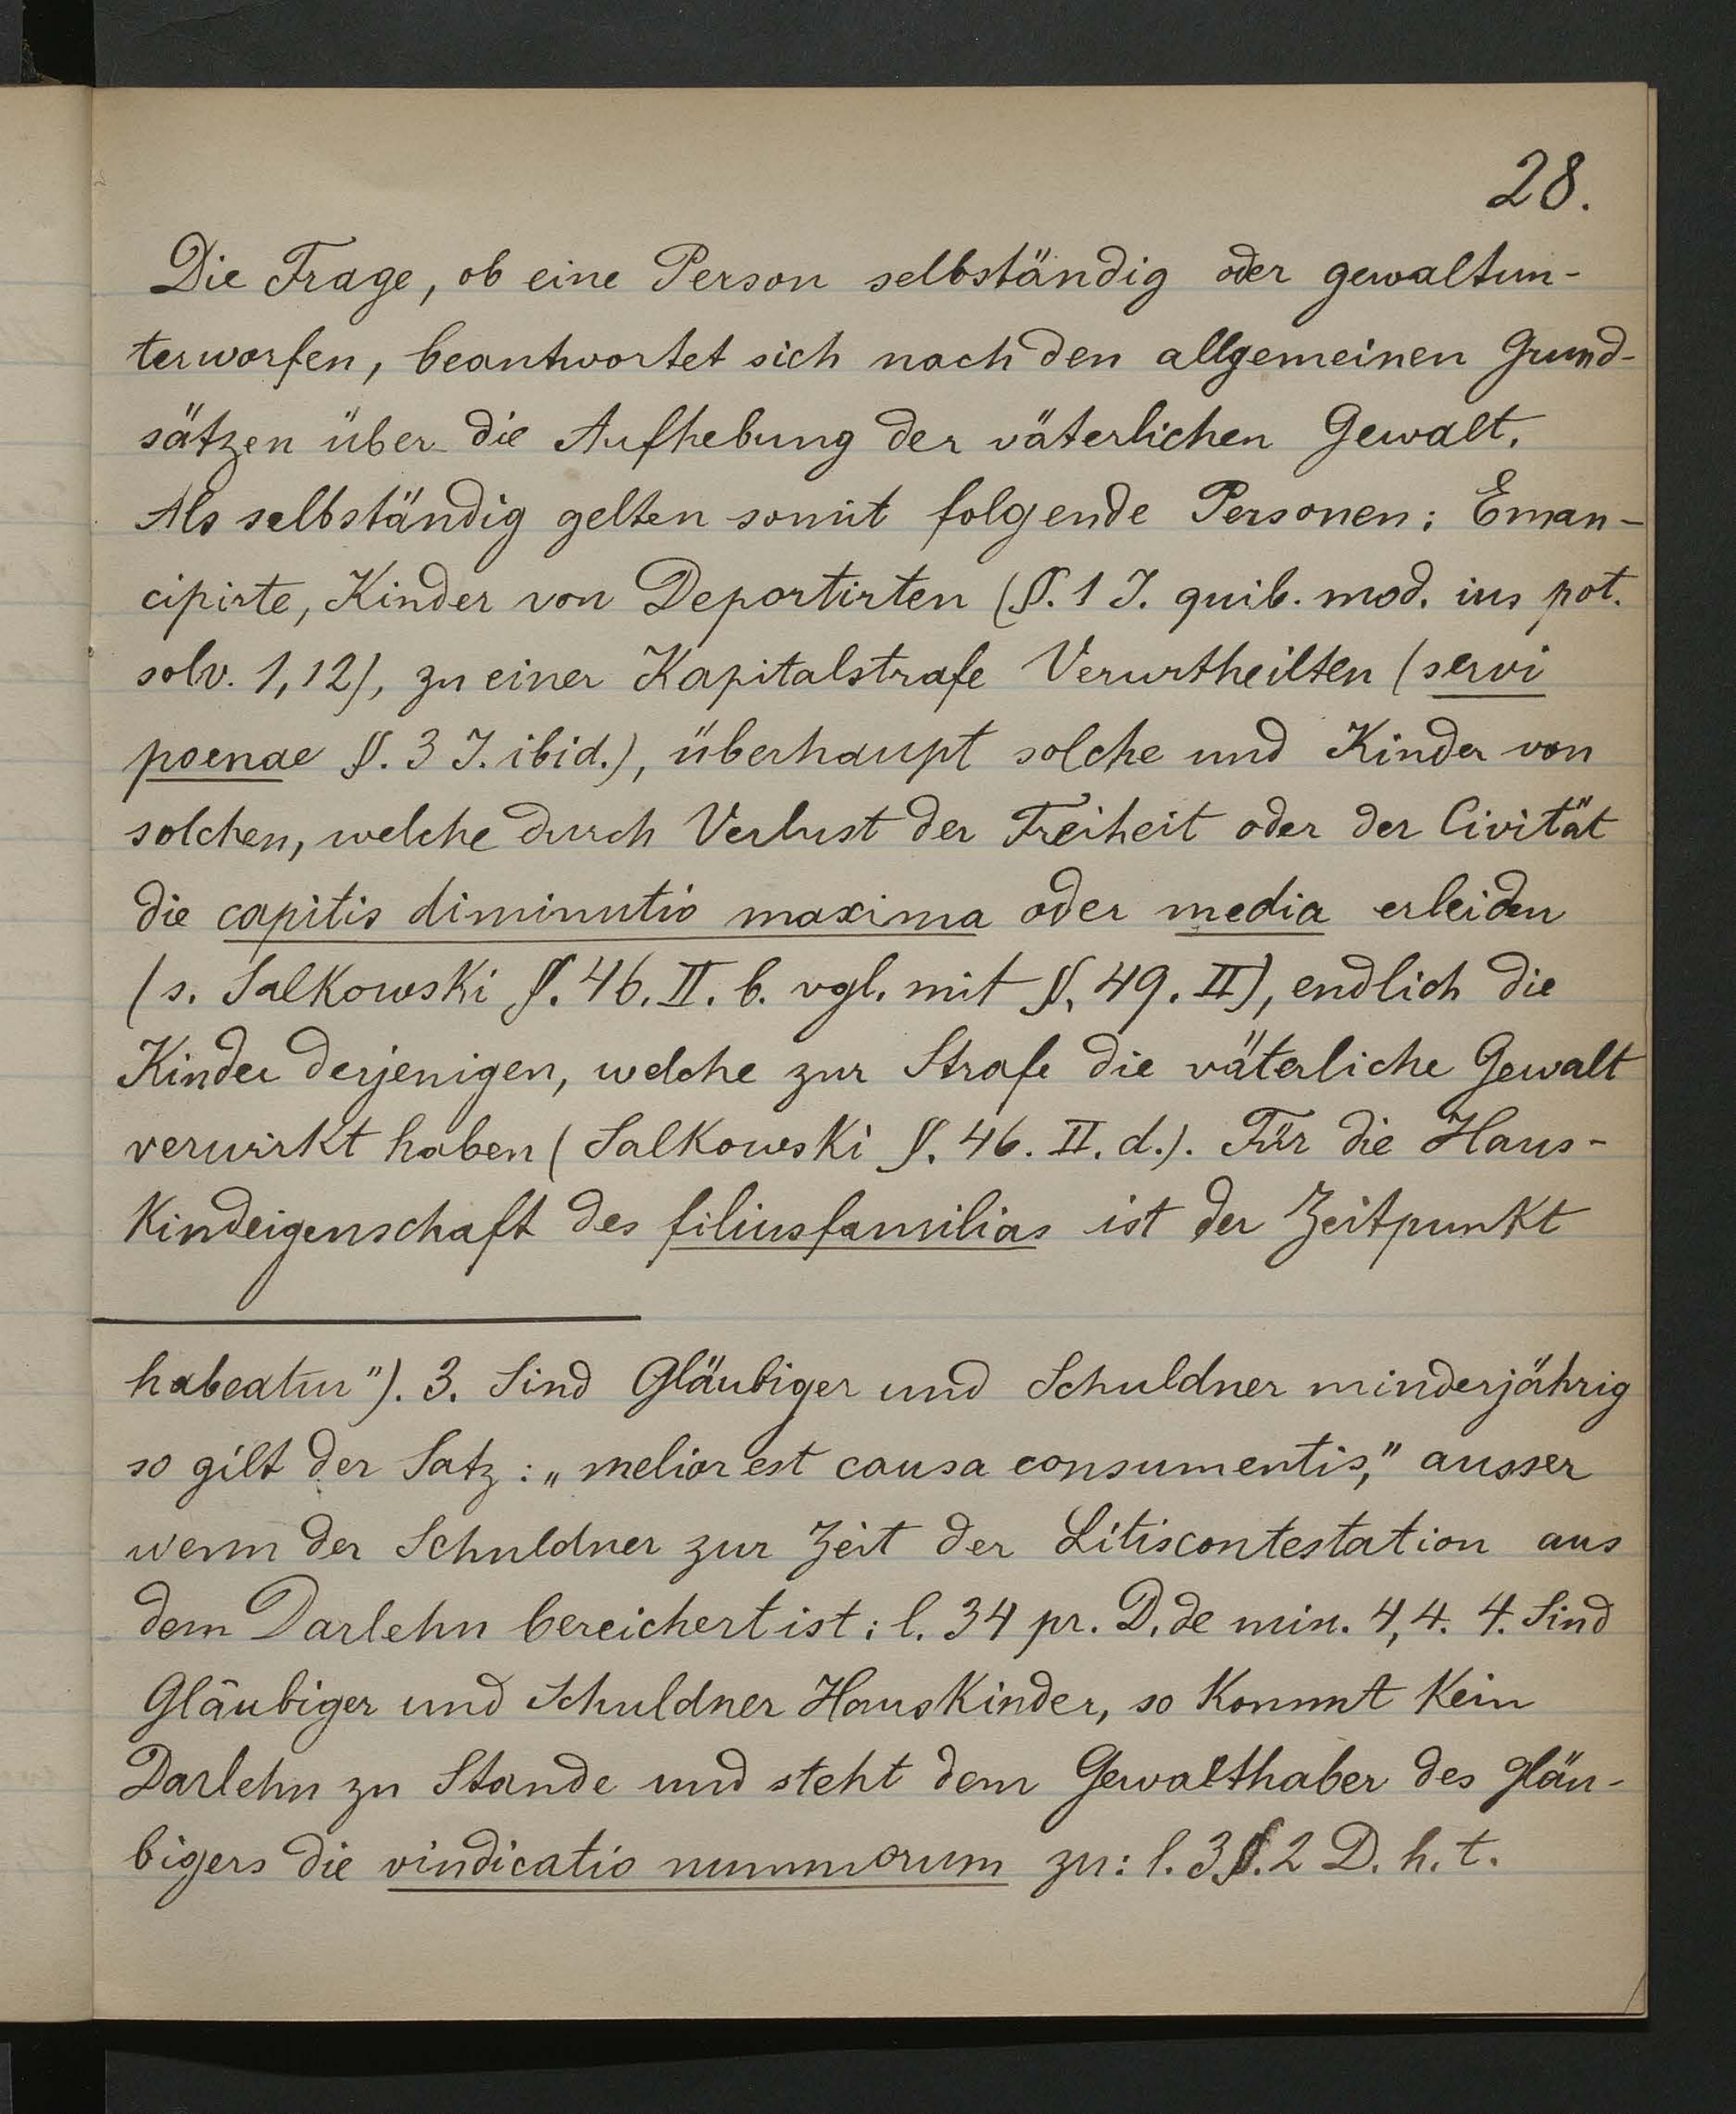 28.
Die Frage, ob eine Person selbständig oder gewaltun-
terworfen, beantwortet sich nach den allgemeinen Grund-
sätzen über die Aufhebung der väterlichen Gewalt.
Als selbständig gelten somit folgende Personen: Eman-
cipirte, Kinder von Deportirten (§. 1 J. quib. mod. ius pot.
solv. 1,12), zu einer Kapitalstrafe Verurtheilten (servi
poenae §. 3 J. ibid.), überhaupt solche und Kinder von
solchen, welche durch Verlust der Freiheit oder der Civität
die capitis diminutio maxima oder media erleiden
(s. Salkowski §. 46. II. b. vgl. mit §. 49. II), endlich die
Kinder derjenigen, welche zur Strafe die väterliche Gewalt
verwirkt haben (Salkowski §. 46. II. d.). Für die Haus-
kindeigenschaft des filiusfamilias ist der Zeitpunkt
habeatur"). 3. Sind Gläubiger und Schuldner minderjährig
so gilt der Satz: „melior est causa consumentis," ausser
wenn der Schuldner zur Zeit der Litiscontestation aus
dem Darlehn bereichert ist: l. 34 pr. D. de min. 4,4. 4. Sind
Gläubiger und Schuldner Hauskinder, so kommt kein
Darlehn zu Stande und steht dem Gewalthaber des Gläu-
bigers die vindicatio nummorum zu: l. 3 §. 2 D. h. t.